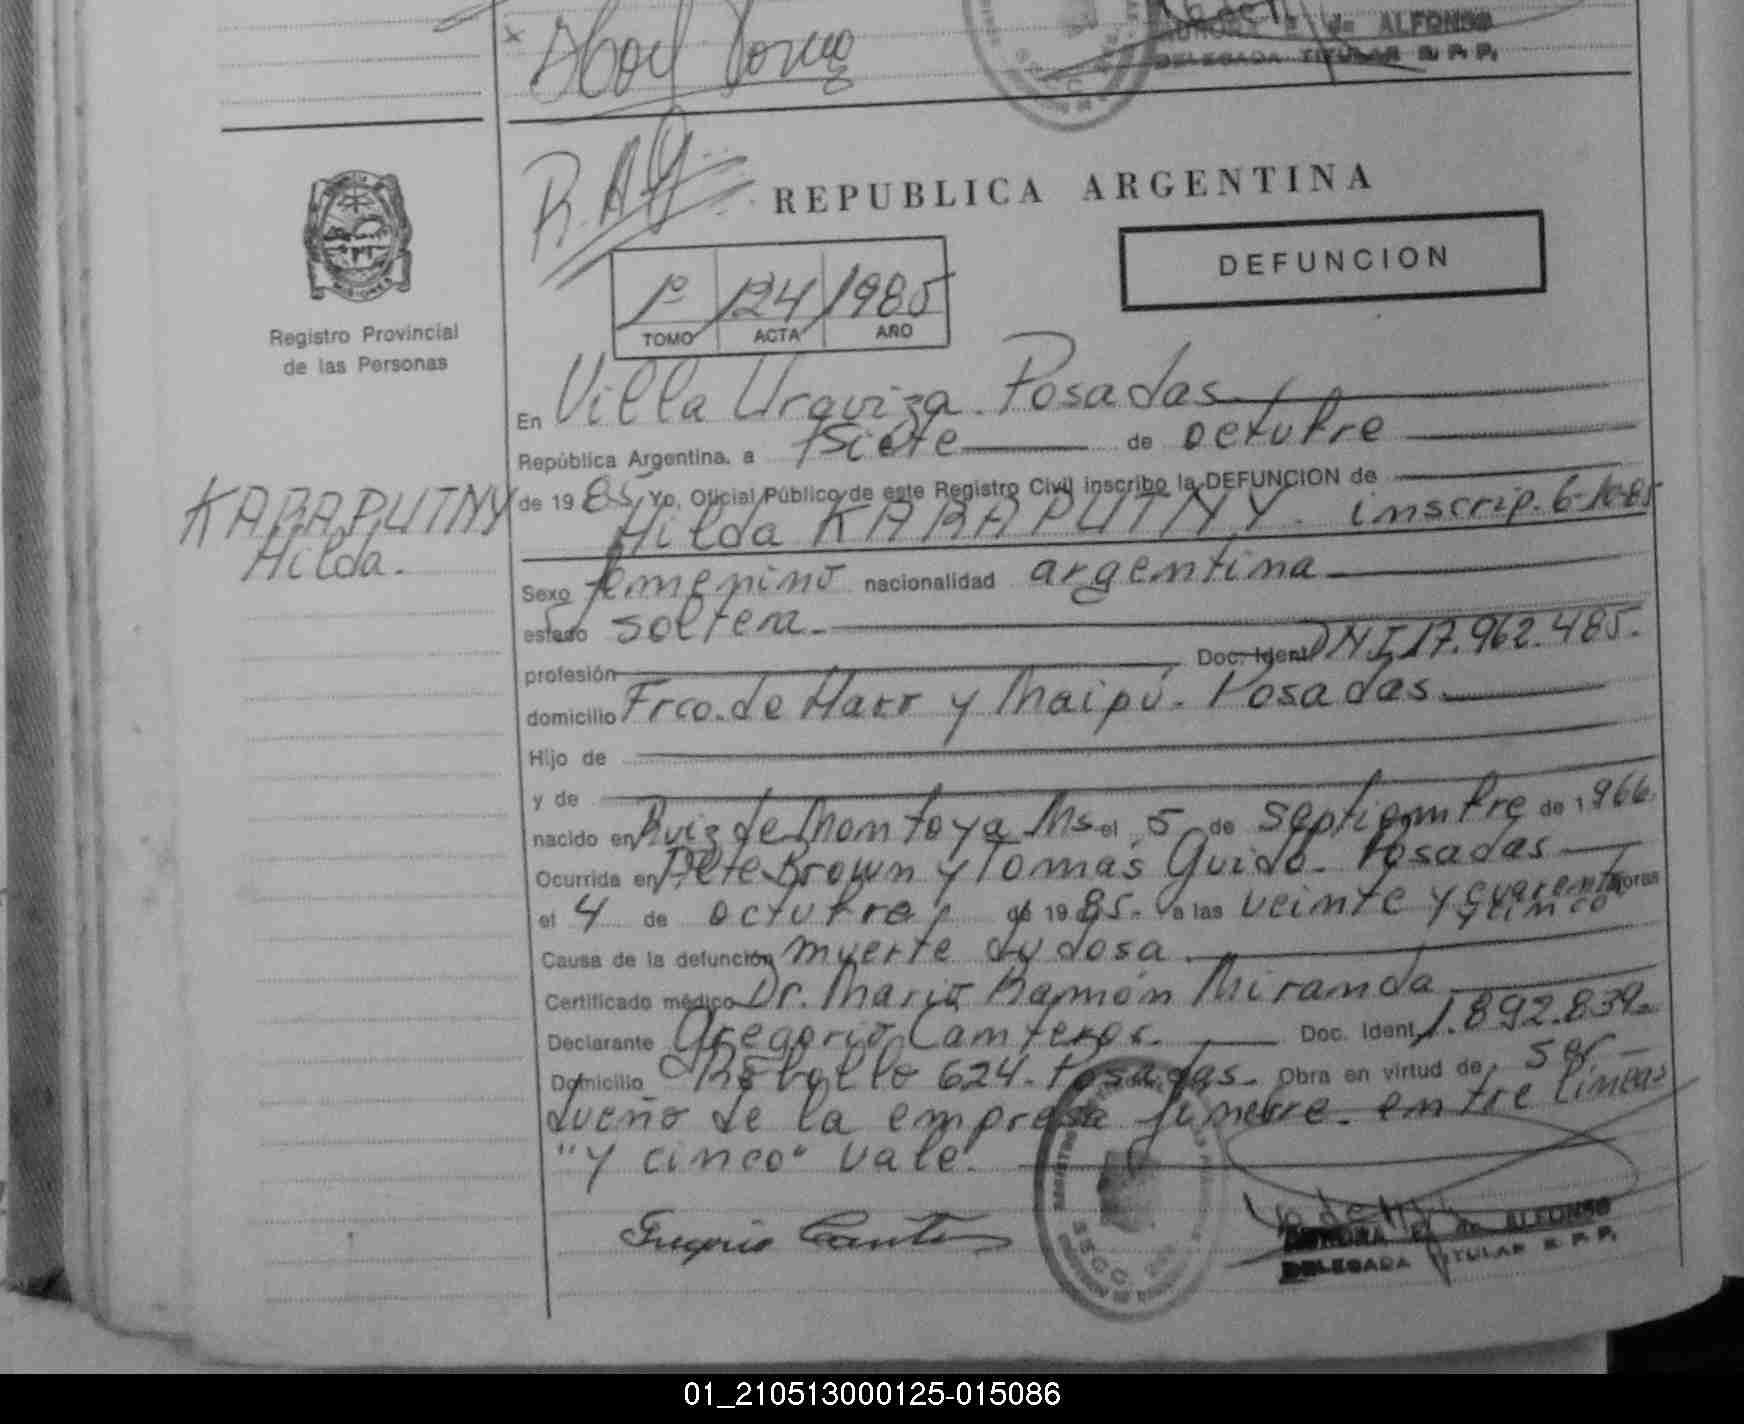 Abel
AURORA E. de ALFONSO
DELEGADA TITULAR R. P. P.
MISIONES
Registro Provincial
de las Personas
REPUBLICA ARGENTINA
DEFUNCION
1º 124 1985
TOMO ACTA AÑO
KARAPUTNY
Hilda.
En Villa Urquiza. Posadas
República Argentina, a siete de octubre
de 1985 Yo, Oficial Público de este Registro Civil inscribo la DEFUNCION de
Hilda KARAPUTNY. inscrip. 6-10-85
Sexo femenino nacionalidad argentina
estado soltera.
profesión Doc. Ident DNI 17.962.485.
domicilio Frco. de Haro y Maipú. Posadas
Hijo de
y de
nacido en Ruiz de Montoya Ms el 5 de septiembre de 1966.
Ocurrida en Brown y Tomás Guido. Posadas
el 4 de octubre de 1985. a las veinte y cuarenta horas
y cinco
Causa de la defunción muerte dudosa.
Certificado médico Dr. Mario Ramón Miranda
Declarante Gregorio Canteros. Doc. Ident. 1.892.839.
Domicilio Rebollo 624. Posadas. Obra en virtud de ser
dueño de la empresa funebre. entre lineas
"y cinco" vale.
AURORA E. de ALFONSO
DELEGADA TITULAR R. P. P.
01_210513000125-015086